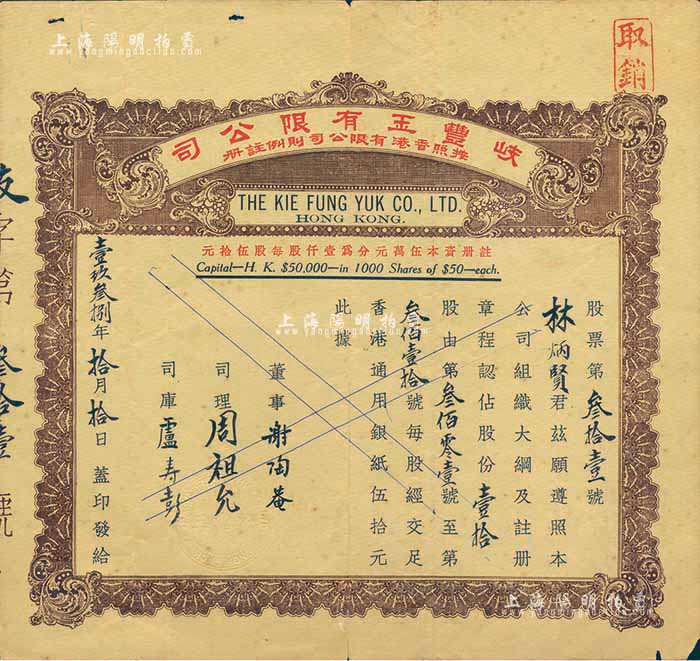 取銷
岐豐玉有限公司
按照香港有限公司則例註冊
THE KIE FUNG YUK CO., LTD.
HONG KONG.
註册資本伍萬元分爲壹仟股每股伍拾元
Capital—H. K. $50,000—in 1000 Shares of $50—each.
股票第叁拾壹號
林炳賢君茲願遵照本
公司組織大綱及註册
章程認佔股份壹拾
股由第叁佰零壹號至第
叁佰壹拾號每股經交足
香港通用銀紙伍拾元
此據
董事 謝陶菴
司理 周祖允
司庫 盧壽彭
壹玖叁捌年拾月拾日蓋印發給
字第叁拾壹號
上海陽明拍賣
www.yangmingauction.com
上海陽明拍賣
www.yangmingauction.com
上海陽明拍賣
www.yangmingauction.com